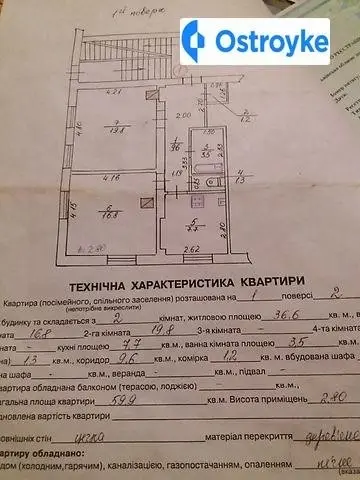 1й поверх
Ostroyke
4.21
7
19.8
4.80
2.00
2.70
0.76
2
1.2
1
9.6
3.83
1.19
1.50
3
3.5
2.33
4
1.3
0.83
4.16
6
16.8
4.15
h. 2.80
5
7.7
2.80
2.62
ТЕХНІЧНА ХАРАКТЕРИСТИКА КВАРТИРИ
Квартира (посімейного, спільного заселення) розташована на 1 поверсі 2
(непотрібне викреслити)
будинку та складається з 2 кімнат, житловою площею 36.6 кв. м, в
кімната 16.8 2-га кімната 19.8 3-я кімната - 4-та кімната
кімната - кухні площею 7.7 кв.м., ванна кімната площею 3.5 кв.м.
1.3 кв.м., коридор 9.6 кв.м., комірка 1.2 кв.м. вбудована шафа
шафа - кв.м., веранда - кв.м., підвал - кв.м.
квартира обладнана балконом (терасою, лоджією) - кв.м.
загальна площа квартири 59.9 кв.м. Висота приміщень 2.80
відновлена вартість квартири
зовнішніх стін цегла матеріал перекриття дерев'яне
квартиру обладнано:
водом (холодним,гарячим), каналізацією, газопостачанням, опаленням пічне